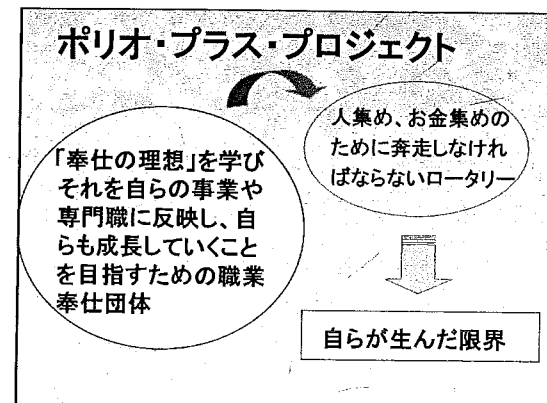 ポリオ・プラス・プロジェクト
「奉仕の理想」を学び
それを自らの事業や
専門職に反映し、自
らも成長していくこと
を目指すための職業
奉仕団体
人集め、お金集めの
ために奔走しなけれ
ばならないロータリー
自らが生んだ限界